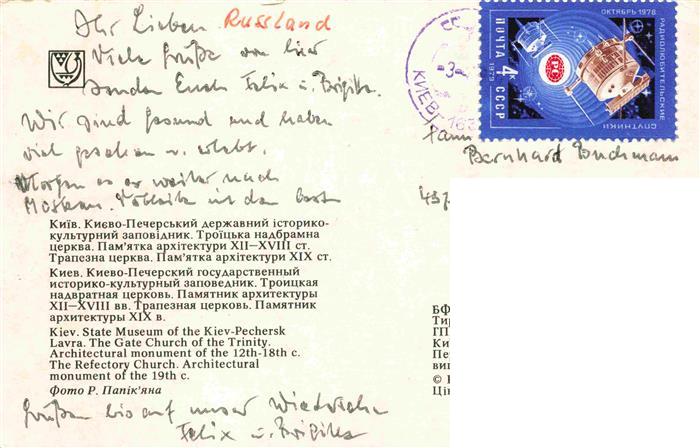 Ihr Lieben. Russland
Viele Grüße von hier
senden Euch Felix u. Brigitte.
Wir sind gesund und haben
viel gesehen u. erlebt.
Morgen es er weiter nach
Moskau. in den
Київ. Києво-Печерський державний історико-
культурний заповідник. Троїцька надбрамна
церква. Пам'ятка архітектури XII—XVIII ст.
Трапезна церква. Пам'ятка архітектури XIX ст.
Киев. Киево-Печерский государственный
историко-культурный заповедник. Троицкая
надвратная церковь. Памятник архитектуры
XII—XVIII вв. Трапезная церковь. Памятник
архитектуры XIX в.
Kiev. State Museum of the Kiev-Pechersk
Lavra. The Gate Church of the Trinity.
Architectural monument of the 12th-18th c.
The Refectory Church. Architectural
monument of the 19th c.
Фото Р. Папік'яна
Grüßen bis auf unser Wiedersehen
Felix u. Brigitte
КИЕВ
ОКТЯБРЬ 1978
РАДИОЛЮБИТЕЛЬСКИЕ
СПУТНИКИ
ПОЧТА 4 К СССР
1979
Fam
Bernhard Buchmann
437
БФ
Тир
ГП
Ки
Пе
вип
©
Цін